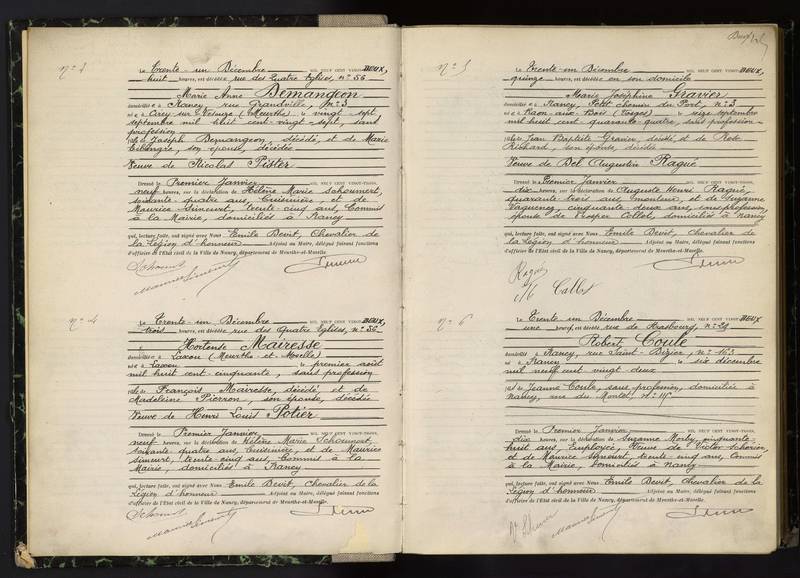 N° 3
Le Trente-un Décembre MIL NEUF CENT VINGT-DEUX,
huit heures, est décédée rue des Quatre Eglises, n° 56
Marie Anne Demangeon
domiciliée à Nancy, rue Grandville, n° 3
née à Crévy sur Vezouze (Meurthe) le vingt sept
septembre mil huit cent vingt sept, sans
profession
fille de Joseph Demangeon, décédé, et de Marie
son épouse, décédée
Veuve de Nicolas Pister
Dressé le Premier Janvier MIL NEUF CENT VINGT-TROIS,
neuf heures, sur la déclaration de Hélène Marie Schoumert,
soixante quatre ans, Cuisinière, et de
Maurice Simeurt, trente-cinq ans, Commis
à la Mairie, domiciliés à Nancy
qui, lecture faite, ont signé avec Nous Emile Devit, Chevalier de
la Légion d'honneur Adjoint au Maire, délégué faisant fonctions
d'officier de l'Etat civil de la Ville de Nancy, département de Meurthe-et-Moselle.
N° 4
Le Trente-un Décembre MIL NEUF CENT VINGT-DEUX,
trois heures, est décédée rue des Quatre Eglises, n° 30
Hortense Mairesse
domiciliée à Laxou (Meurthe-et-Moselle)
née à Laxou le premier août
mil huit cent cinquante, sans profession
fille de François Mairesse, décédé et de
Madeleine Pierron, son épouse, décédée
Veuve de Henri Louis Potier
Dressé le Premier Janvier MIL NEUF CENT VINGT-TROIS,
neuf heures, sur la déclaration de Hélène Marie Schoumert,
soixante quatre ans, Cuisinière, et de Maurice
Simeurt, trente cinq ans, Commis à la
Mairie, domiciliés à Nancy
qui, lecture faite, ont signé avec Nous Emile Devit, Chevalier de la
Légion d'honneur Adjoint au Maire, délégué faisant fonctions
d'officier de l'Etat civil de la Ville de Nancy, département de Meurthe-et-Moselle.
N° 5
Le Trente-un Décembre MIL NEUF CENT VINGT-DEUX,
quinze heures, est décédée en son domicile
Marie Joséphine Gravier
domiciliée à Nancy, Petit chemin du Port, n° 3
née à Raon-aux-Bois (Vosges) le seize septembre
mil huit cent quarante-quatre, sans profession
fille de Jean Baptiste Gravier, décédé, et de Rose
Richard, son épouse, décédée
Veuve de Del Augustin Ragué
Dressé le Premier Janvier MIL NEUF CENT VINGT-TROIS,
dix heures, sur la déclaration de Auguste Henri Ragué,
quarante trois ans, monteur, et de Suzanne
cinquante deux ans, sans profession,
épouse de Prosper Collot, domiciliés à Nancy
qui, lecture faite, ont signé avec Nous Emile Devit, Chevalier de
la Légion d'honneur Adjoint au Maire, délégué faisant fonctions
d'officier de l'Etat civil de la Ville de Nancy, département de Meurthe-et-Moselle.
Ragué
Collot
N° 6
Le Trente un Décembre MIL NEUF CENT VINGT-DEUX,
une heure, est décédé rue de Strasbourg, n° 29
Robert Coule
domicilié à Nancy, rue Saint-Dizier, n° 163
né à Nancy le six décembre
mil neuf cent vingt deux
fils de Jeanne Coule, sans profession, domiciliée à
Nancy, rue du Montet n° 115
Dressé le Premier Janvier MIL NEUF CENT VINGT-TROIS,
dix heures, sur la déclaration de Suzanne Morby, cinquante-
huit ans, Employée, Veuve de Victor
et de Maurice Simeurt, trente-cinq ans, Commis
à la Mairie, domiciliés à Nancy
qui, lecture faite, ont signé avec Nous Emile Devit, Chevalier de la
Légion d'honneur Adjoint au Maire, délégué faisant fonctions
d'officier de l'Etat civil de la Ville de Nancy, département de Meurthe-et-Moselle.